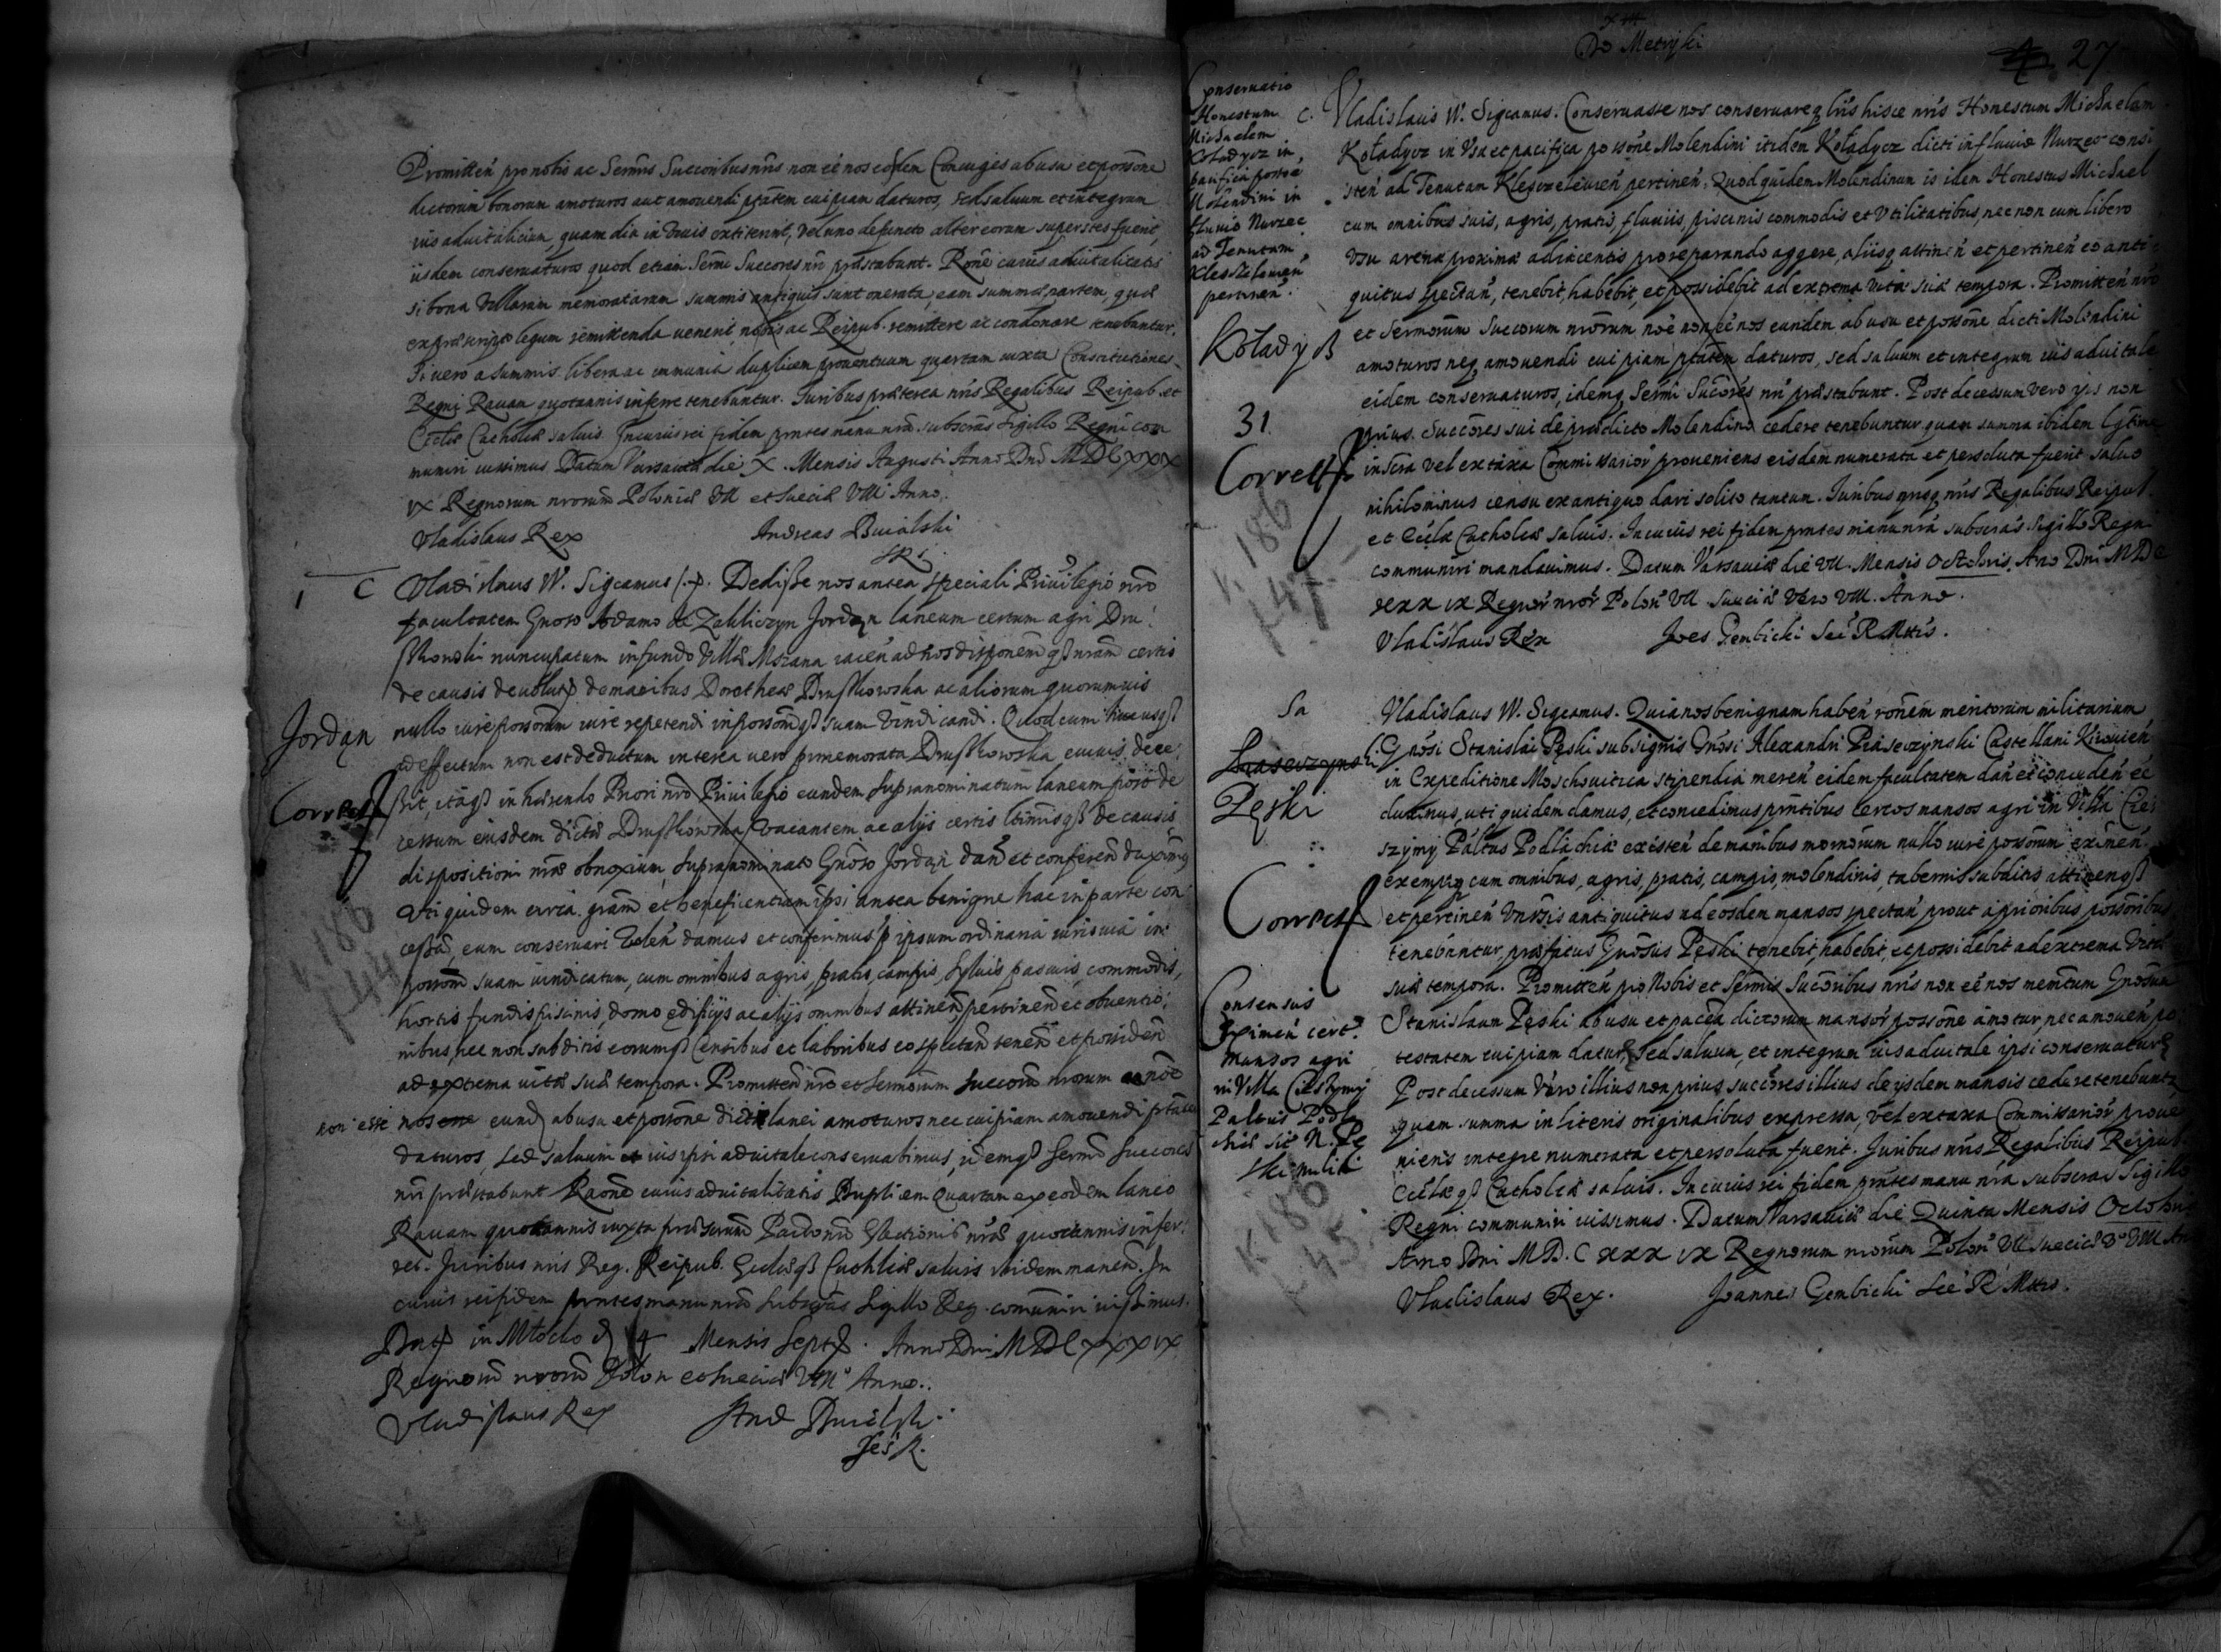 Promitteñ pro nobis ac Sermis Succoribus nris non eẽ nos eosdem Coniuges ab usu et possone
dictorum bonorum amoturos aut amouendi ptatem cuipiam daturos, sed saluum et integrum
ius aduitalicium, quam diu in viuis extiterint, vel uno defuncto alter eorum superstes fuerit,
iisdem conseruaturos quod etiam Sermi Succores nri præstabunt. Rone cuius aduitalitatis
si bona Villarum memoratarum summis antiquis sunt onerata, eam summæ partem, quæ
ex præscripto legum remittenda uenerit, nobis ac Reipub. remittere ac condonare tenebuntur.
Si vero a summis libera ac immunia duplicem prouentuum quartam iuxta Constitutiones
Regni Rauam quotannis inferre tenebuntur. Iuribus præterea nris Regalibus Reipub. et
Ecclæ Catholicæ saluis. In cuius rei fidem pntes manu nra subscras Sigillo Regni com
muniri iussimus. Datum Varsauiæ die X. Mensis Augusti Anno Dni MDCXXX
IX Regnorum nrorum Poloniæ VII et Sueciæ VIII Anno.
Vladislaus Rex Andreas Buialski
SRS.
1 C Vladislaus W. Sigcamus Dedisse nos antea speciali Priuilegio nro
facultatem Gnoso Adamo de Zakliczyn Jordan laneum certum agri Dru
szkowski nuncupatum in fundo Villæ Mszana iaceñ ad nos disponem qz nram certis
de causis deuolut de manibus Dorotheæ Druszkowska ac aliorum quorumuis
Jordan nullo iure possorum iure repetendi in possomqz suam vindicandi. Quod cum hucusqz
ad effectum non est deductum interea uero prmemorata Druszkowska e uiuis dece
Correct ssit, itaqz in hærendo Priori nro Priuilegio eundem supranominatum laneum post de
cessum eiusdem dictæ Druszkowska vacantem ac alijs certis ltimisqz de causis
dispositioni nræ obnoxium, supranominato Gnoso Jordan dañ et conferen duximus
Vti quidem circa gram et beneficentiam ipsi antea benigne hac in parte con
cessa, eum conseruari voleñ damus et conferimus p ipsum ordinaria iuris uia in
possom suam uindicatum, cum omnibus agris, pratis, campis, syluis, pascuis, commodis,
hortis fundis piscinis, domo ędificijs ac alijs omnibus attineñ pertineñ et obuentio
nibus, nec non subditis eorumqz Censibus et laboribus eo spectañ teneñ et possideñ
ad extrema uitæ suæ tempora. Promitteñ nro et Sermorum Succorum nrorum noe
non esse nos eund ab usu et possone dicti lanei amoturos nec cuipiam amouendi ptatem
daturos, sed saluum ius ipsi aduitale conseruabimus, idemqz Sermi Succores
nri præstabunt. Raone cuius aduitalitatis Duplicem Quartam ex eodem laneo
Rauam quotannis iuxta præscrum Pactorum nræ quotannis infer
ret. Iuribus nris Reg. Reipub. Ecclæqz Cathlicæ saluis ibidem maneñ. In
cuius rei fidem pntes manu nra subscras Sigillo Reg. comuniri iussimus.
Dat in Młocko d 14 Mensis Septb. Anno Dni MDCXXXIX
Regnorū nrorū Polon et Sueciæ Anno.
Vladislaus Rex And Buialski
Sec R.
Do Metryki
27
Conseruatio
Honestum
Michaelem
Koładycz in
pacifica possoe
Molendini in
fluuio Nurzec
ad Tenutam
Kleszczelouień
pertineñ.
Koładycz
31
Correct
C. Vladislaus W. Sigcamus. Conseruasse nos conseruareqz lris hisce nris Honestum Michaelem
Koładycz in Vsu et pacifica possone Molendini itidem Koładycz dicti in fluuio Nurzec consi
steñ ad Tenutam Kleszczelewień pertineñ. Quod quidem Molendinum is idem Honestus Michael
cum omnibus suis, agris, pratis, fluuiis, piscinis commodis et Vtilitatibus, nec non cum libero
Vsu arenæ proximæ adiacentis pro reparando aggere, aliisqz attineñ et pertineñ eo anti
quitus spectañ, tenebit, habebit, et possidebit ad extrema vitæ suæ tempora. Promitteñ nro
et Sermorum Succorum nrorum noe non eẽ nos eundem ab usu et possone dicti Molendini
amoturos neqz amouendi cuipiam ptatem daturos, sed saluum et integrum ius aduitale
eidem conseruaturos, idemqz Sermi Succores nri præstabunt. Post decessum vero ips non
prius Succores sui de prædicto Molendino cedere tenebuntur quam summa ibidem lgtime
inscra vel ex taxa Commissarior proueniens eisdem numerata et persoluta fuerit saluo
nihilominus censu ex antiquo dari solito tantum. Iuribus qnqz nris Regalibus Reipub.
et Ecclæ Catholcæ saluis. In cuius rei fidem pntes manu nra subscras Sigillo Regni
communiri mandauimus. Datum Varsauiæ die VII. Mensis Octobris. Ano Dni MDC
XXX IX Regnor nror Polon VII Sueciæ vero VIII. Anno.
Vladislaus Rex Joes Gembicki Sec R Mttis.
Sa
Piaseczynski
Pęski
Correct
Consensus
Eximeñ cert
mansos agri
in Villa Cieszymy
Paltus Podla
chiæ sit N. Pę
ski militi
Vladislaus W. Sigcamus. Quia nos benignam habeñ ronem meritorum militarium
Gnosi Stanislai Pęski sub signis Gnosi Alexandri Piaseczynski Castellani Kiiouień
in Expeditione Moschouitica stipendia mereñ eidem facultatem dañ et concedeñ eẽ
duximus, uti quidem damus, et concedimus pntibus certos mansos agri in Villa Cie
szymy Paltus Podlachiæ existeñ de manibus modernorum nullo iure possorum eximeñ.
exemptqz cum omnibus, agris, pratis, campis, molendinis, tabernis subditis attinenqz
et pertineñ Vnrsis antiquitus ad eosdem mansos spectañ prout a prioribus possoribus
tenebantur, præfatus Gnosus Pęski tenebit, habebit, et possidebit ad extrema vitæ
suæ tempora. Promitteñ pro Nobis et Sermis Succoribus nris non eẽ nos memtum Gnosum
Stanislaum Pęski ab usu et paceta dictorum mansor possone amotur, nec amoueñ po
testatem cuipiam datur, sed saluum, et integrum ius aduitale ipsi conseruatur
Post decessum Vero illius non prius succores illius de ijsdem mansis cedere tenebuntr
quam summa in literis originalibus expressa, vel ex taxa Commissarior proue
niens integre numerata et persoluta fuerit. Iuribus nris Regalibus Reipub.
Ecclæqz Catholcæ saluis. In cuius rei fidem pntes manu nra subscras Sigillo
Regni communiri iussimus. Datum Varsauiæ die Quinta Mensis Octobris
Anno Dni M.D.C XXX IX Regnorum nrorum Polon VII Sueciæ Vo VIII An
Vladislaus Rex. Joannes Gembicki Sec R Mttis.